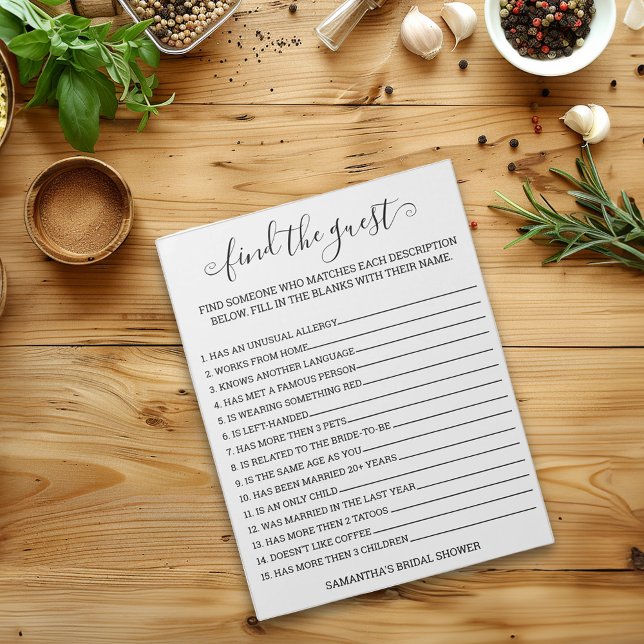 find the guest
FIND SOMEONE WHO MATCHES EACH DESCRIPTION
BELOW. FILL IN THE BLANKS WITH THEIR NAME.
1. HAS AN UNUSUAL ALLERGY
2. WORKS FROM HOME
3. KNOWS ANOTHER LANGUAGE
4. HAS MET A FAMOUS PERSON
5. IS WEARING SOMETHING RED
6. IS LEFT-HANDED
7. HAS MORE THEN 3 PETS
8. IS RELATED TO THE BRIDE-TO-BE
9. IS THE SAME AGE AS YOU
10. HAS BEEN MARRIED 20+ YEARS
11. IS AN ONLY CHILD
12. WAS MARRIED IN THE LAST YEAR
13. HAS MORE THEN 2 TATOOS
14. DOESN'T LIKE COFFEE
15. HAS MORE THEN 3 CHILDREN
SAMANTHA'S BRIDAL SHOWER